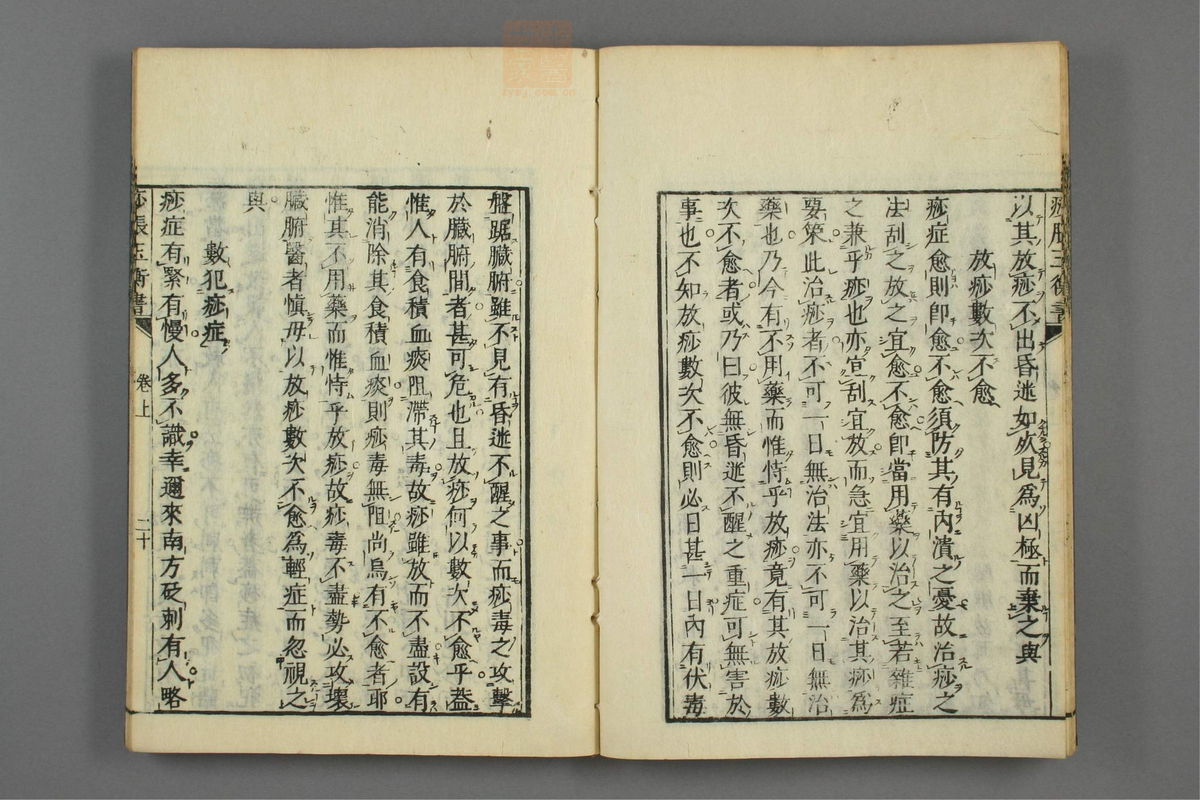 痧脹玉衡書
以其放痧不出昏迷如故見為凶極而棄之與
放痧數次不愈
痧症愈則卽愈不愈須防其有內潰之憂故治痧之
法刮之放之宜愈不愈卽當用藥以治之至若雜症
之兼乎痧也亦宜刮宜放而急宜用藥以治其痧為
要策此治痧者不可一日無治法亦不可一日無治
藥也乃今有不用藥而惟恃乎放痧竟有其放痧數
次不愈者或乃曰彼無昏迷不醒之重症可無害於
事也不知放痧數次不愈則必日甚一日內有伏毒
盤踞臟腑雖不見有昏迷不醒之事而痧毒之攻擊
於臟腑間者甚可危也且放痧何以數次不愈乎葢
惟人有食積血痰阻滯其毒故痧雖放而不盡設有
能消除其食積血痰則痧毒無阻尚烏有不愈者耶
惟其不用藥而惟恃乎放痧故痧毒不盡勢必攻壞
臟腑醫者愼毋以放痧數次不愈為輕症而忽視之
與
數犯痧症
痧症有緊有慢人多不識幸邇來南方砭刺有人略
痧脹玉衡書
卷上
二十